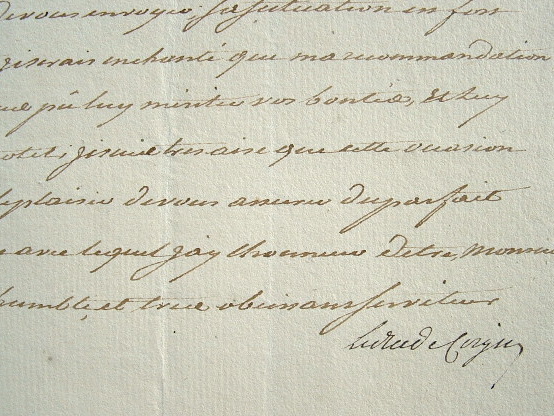 devous envoyer, sa situation en fort
serais enchanté que ma recommandation
pû luy mériter vos bontés, et luy
jesuis tres aise que cette occasion
leplaisir devous assurer duparfait
avec lequel jay lhonneur detre, Monsieur
humble, et tres obeissans serviteur